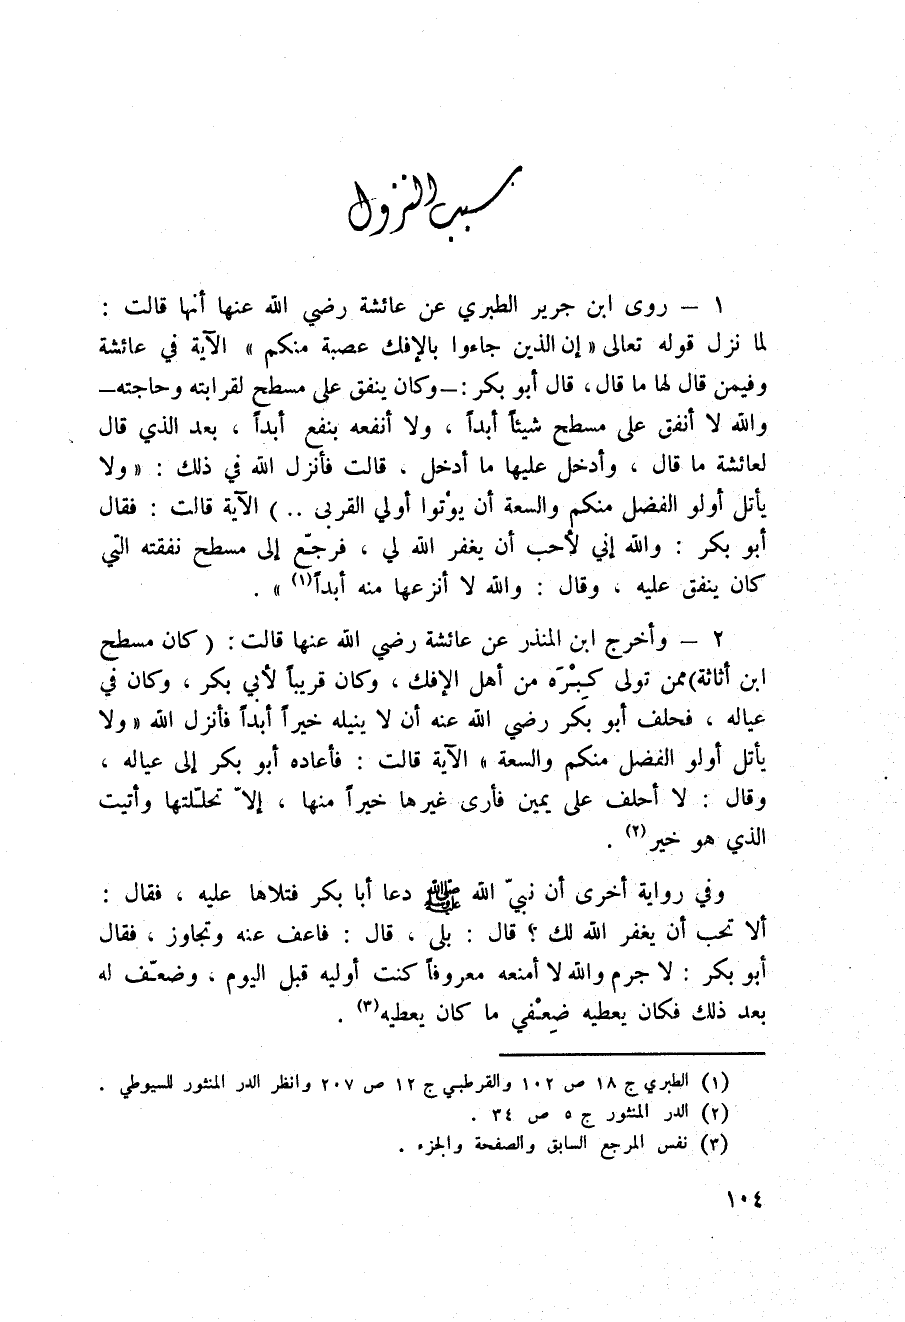 سبب النزول
١ – روى ابن جرير الطبري عن عائشة رضي الله عنها أنها قالت :
لما نزل قوله تعالى « إن الذين جاءوا بالإفك عصبة منكم » الآية في عائشة
وفيمن قال لها ما قال، قال أبو بكر :–وكان ينفق على مسطح لقرابته وحاجته–
والله لا أنفق على مسطح شيئاً أبداً ، ولا أنفعه بنفع أبداً ، بعد الذي قال
لعائشة ما قال ، وأدخل عليها ما أدخل . قالت فأنزل الله في ذلك : « ولا
يأتل أولو الفضل منكم والسعة أن يؤتوا أولي القربى .. ) الآية قالت : فقال
أبو بكر : والله إني لأحب أن يغفر الله لي ، فرجّع إلى مسطح نفقته التي
كان ينفق عليه ، وقال : والله لا أنزعها منه أبداً(١) » .
٢ – وأخرج ابن المنذر عن عائشة رضي الله عنها قالت : ( كان مسطح
ابن أثاثة)ممن تولى كِبْرَه من أهل الإفك ، وكان قريباً لأبي بكر ، وكان في
عياله ، فحلف أبو بكر رضي الله عنه أن لا ينيله خيراً أبداً فأنزل الله « ولا
يأتل أولو الفضل منكم والسعة » الآية قالت : فأعاده أبو بكر إلى عياله ،
وقال : لا أحلف على يمين فأرى غيرها خيراً منها ، إلاّ تحلّلتها وأتيت
الذي هو خير(٢) .
وفي رواية أخرى أن نبيّ الله ﷺ دعا أبا بكر فتلاها عليه ، فقال :
ألا تحب أن يغفر الله لك ؟ قال : بلى ، قال : فاعف عنه وتجاوز ، فقال
أبو بكر : لا جرم والله لا أمنعه معروفاً كنت أوليه قبل اليوم ، وضعّف له
بعد ذلك فكان يعطيه ضِعْفي ما كان يعطيه(٣) .
(١) الطبري ج ١٨ ص ١٠٢ والقرطبي ج ١٢ ص ٢٠٧ وانظر الدر المنثور للسيوطي .
(٢) الدر المنثور ج ٥ ص ٣٤ .
(٣) نفس المرجع السابق والصفحة والجزء .
١٠٤